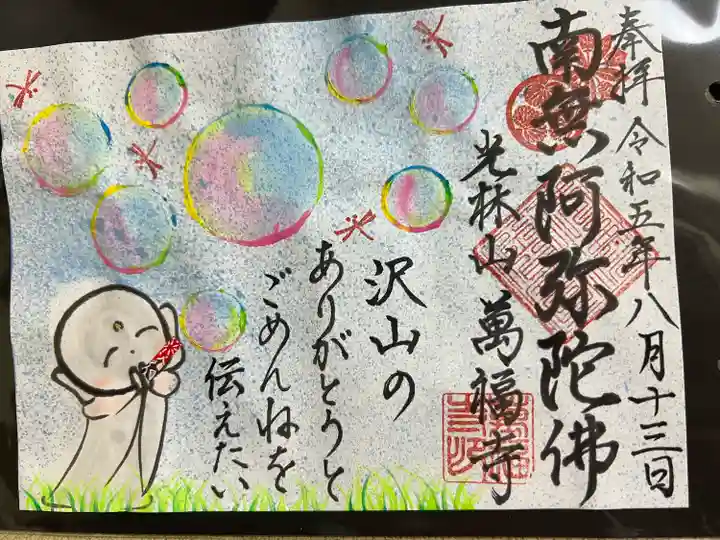 奉拝 令和五年八月十三日
南無阿弥陀佛
光林山 萬福寺
沢山の
ありがとうと
ごめんねを
伝えたい